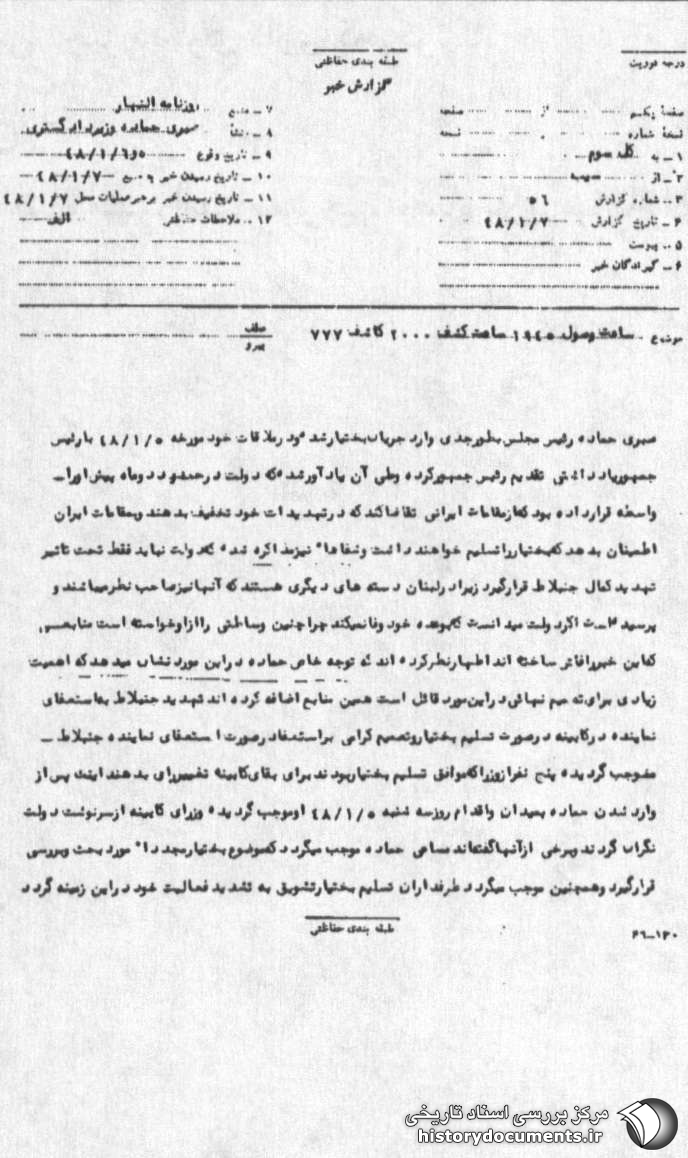 طبقه بندی حفاظتی
گزارش خبر
درجه فوریت
صفحه یکم از صفحه
نسخه شماره نسخه
۱ – به کل سوم
۲ – از
۳ – شماره گزارش ۵۶
۴ – تاریخ گزارش ۴۸/۱/۷
۵ – پیوست
۶ – گیرندگان خبر
۷ – منبع روزنامه النهار
۸ – منشأ صبری حماده وزیر دادگستری
۹ – تاریخ وقوع ۵و۴۸/۱/۶
۱۰ – تاریخ رسیدن خبر به منبع ۴۸/۱/۷
۱۱ – تاریخ رسیدن خبر به رهبر عملیات محل ۴۸/۱/۷
۱۲ – ملاحظات حفاظتی الف
موضوع ساعت وصول ۱۹۴۵ ساعت کشف ۲۰۰۰ کاشف ۷۷۷
عطف
پیرو
صبری حماده رئیس مجلس بطورجدی وارد جریان بختیار شد ه ود رملاقات خود مورخه ۴۸/۱/۵ با رئیس
جمهوریاد داشتی تقدیم رئیس جمهورکرده وطی آن یاد آورشده که د ولت د رحدود د وماه پیش اورا –
واسطه قرارداده بود که ازمقامات ایرانی تقاضا کند که د رتهدیدات خود تخفیف بدهند وبمقامات ایران
اطمینان بدهد که بختیار را تسلیم خواهند داشت وشفاها" نیزمذاکره شده که دولت نباید فقط تحت تاثیر
تهدید کمال جنبلاط قرارگیرد زیرا د رلبنان دسته های دیگری هستند که آنها نیزصاحب نظرمیباشند و
پرسیده است اگردولت میدانست که بوعده خود وفا نمیکند چرا چنین وساطتی را ازاوخواسته است منابعـــی
که این خبررا فاش ساخته اند اظهارنظرکرده اند که توجه خاص حماده د راین مورد نشان میدهد که اهمیت
زیادی برای تصمیم نهائی د راین مورد قائل است همین منابع اضافه کرده اند تهدید جنبلاط به استعفای
نماینده د رکابینه د رصورت تسلیم بختیار وتصمیم کرامی براستعفا د رصورت استعفای نماینده جنبلاط –
موجب گردیده پنج نفرازوزرا که موافق تسلیم بختیار بودند برای بقای کابینه تغییررای بدهند اینک پس از
وارد شدن حماده بمیدان واقدام روزسه شنبه ۴۸/۱/۵ اوموجب گردیده وزرای کابینه ازسرنوشت دولت
نگران گردند وبرخی ازآنها گفته اند مساعی حماده موجب میگردد که موضوع بختیار مجددا" مورد بحث وبررسی
قرارگیرد وهمچنین موجب میگردد طرفداران تسلیم بختیار تشویق به تشدید فعالیت خود د راین زمینه گردد
طبقه بندی حفاظتی
۴۶–۱۳۰
مرکز بررسی اسناد تاریخی
historydocuments.ir